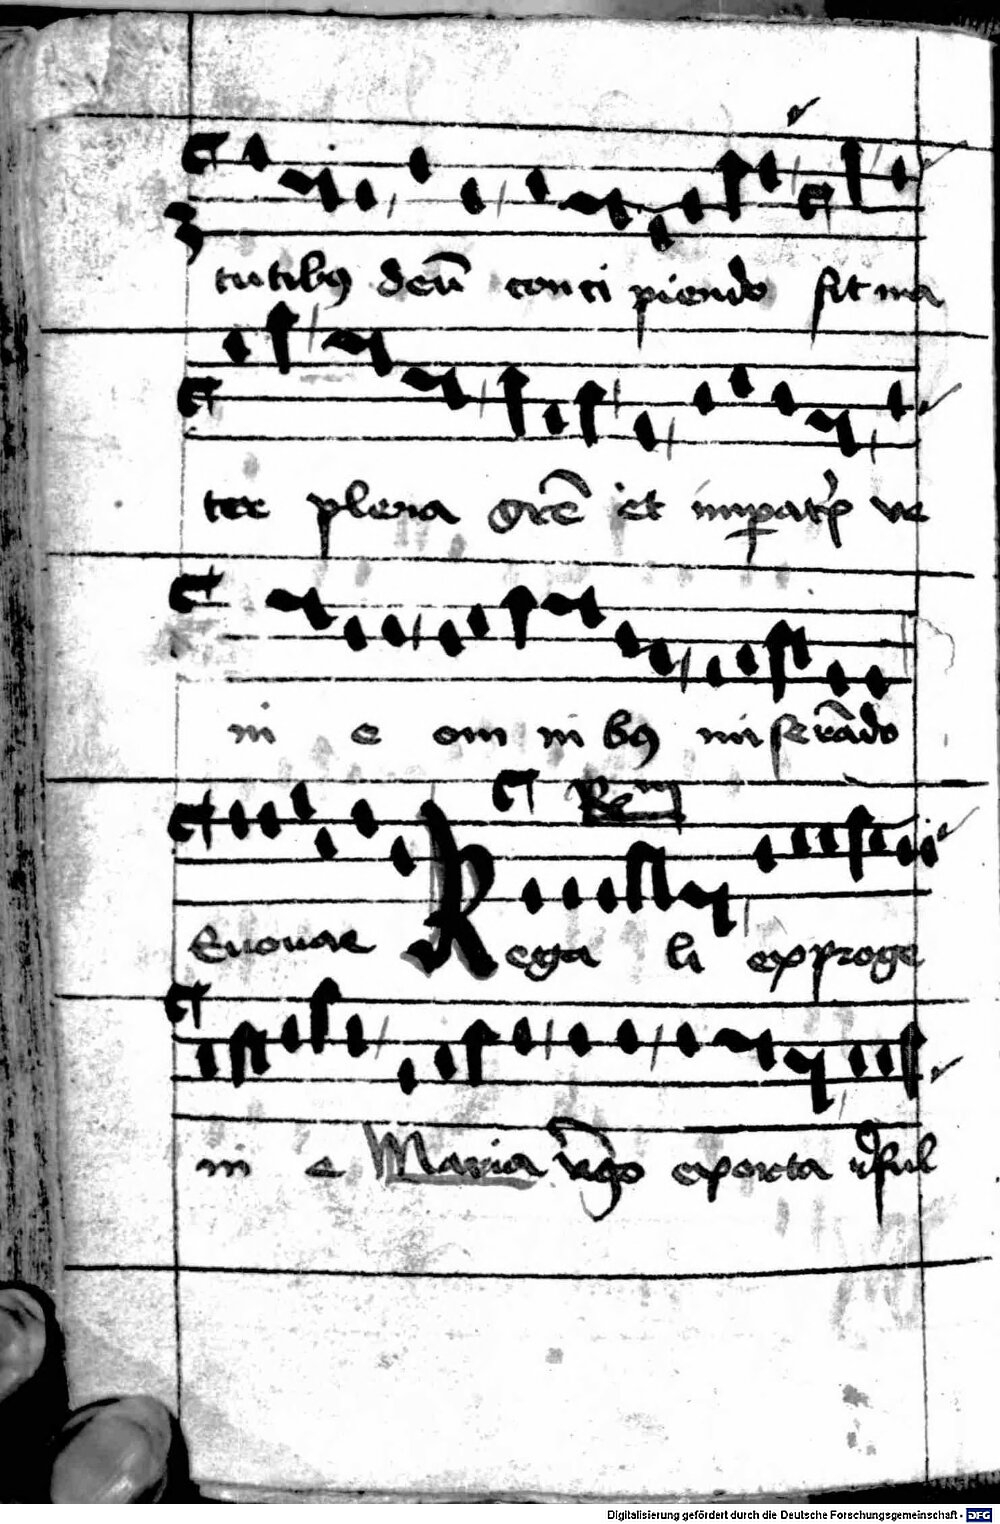 tutibꝯ deū conci piendo fit ma
ter plena grē et imꝑat᷑ ve
ni e om ni bꝯ miserādo
Re
Euouae Rega li ex proge
ni e Maria vgo exorta ful
Digitalisierung gefördert durch die Deutsche Forschungsgemeinschaft - DFG